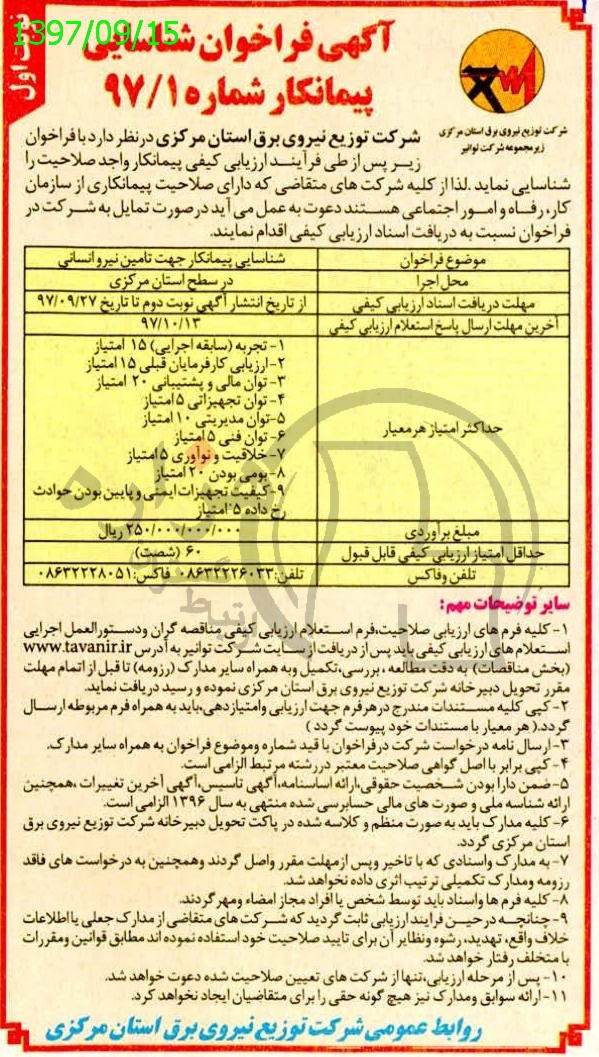 1397/09/15
نوبت اول
آگهی فراخوان شناسایی
پیمانکار شماره ۹۷/۱
شرکت توزیع نیروی برق استان مرکزی
زیرمجموعه شرکت توانیر
شرکت توزیع نیروی برق استان مرکزی درنظر دارد با فراخوان
زیر پس از طی فرآیند ارزیابی کیفی پیمانکار واجد صلاحیت را
شناسایی نماید .لذا از کلیه شرکت های متقاضی که دارای صلاحیت پیمانکاری از سازمان
کار، رفاه و امور اجتماعی هستند دعوت به عمل می آید درصورت تمایل به شرکت در
فراخوان نسبت به دریافت اسناد ارزیابی کیفی اقدام نمایند.
موضوع فراخوان شناسایی پیمانکار جهت تامین نیرو انسانی
محل اجرا در سطح استان مرکزی
مهلت دریافت اسناد ارزیابی کیفی از تاریخ انتشار آگهی نوبت دوم تا تاریخ ۹۷/۰۹/۲۷
آخرین مهلت ارسال پاسخ استعلام ارزیابی کیفی ۹۷/۱۰/۱۳
حداکثر امتیاز هرمعیار
۱- تجربه (سابقه اجرایی) ۱۵ امتیاز
۲-ارزیابی کارفرمایان قبلی ۱۵ امتیاز
۳- توان مالی و پشتیبانی ۲۰ امتیاز
۴- توان تجهیزاتی ۵ امتیاز
۵-توان مدیریتی ۱۰ امتیاز
۶- توان فنی ۵ امتیاز
۷- خلاقیت و نوآوری ۵ امتیاز
۸-بومی بودن ۲۰ امتیاز
۹-کیفیت تجهیزات ایمنی و پایین بودن حوادث
رخ داده ۵ امتیاز
مبلغ برآوردی ۲۵۰/۰۰۰/۰۰۰/۰۰۰ ریال
حداقل امتیاز ارزیابی کیفی قابل قبول ۶۰ (شصت)
تلفن وفاکس تلفن:۰۸۶۳۲۲۲۶۰۳۳ فاکس:۰۸۶۳۲۲۲۸۰۵۱
سایر توضیحات مهم:
۱- کلیه فرم های ارزیابی صلاحیت،فرم استعلام ارزیابی کیفی مناقصه گران ودستورالعمل اجرایی
استعلام های ارزیابی کیفی باید پس از دریافت از سایت شرکت توانیر به آدرس www.tavanir.ir
(بخش مناقصات) به دقت مطالعه ، بررسی،تکمیل وبه همراه سایر مدارک (رزومه) تا قبل از اتمام مهلت
مقرر تحویل دبیرخانه شرکت توزیع نیروی برق استان مرکزی نموده و رسید دریافت نماید.
۲- کپی کلیه مستندات مندرج درهرفرم جهت ارزیابی وامتیازدهی،باید به همراه فرم مربوطه ارسال
گردد.( هر معیار با مستندات خود پیوست گردد )
۳-ارسال نامه درخواست شرکت درفراخوان با قید شماره وموضوع فراخوان به همراه سایر مدارک.
۴- کپی برابر با اصل گواهی صلاحیت معتبر دررشته مرتبط الزامی است.
۵- ضمن دارا بودن شخصیت حقوقی،ارائه اساسنامه،آگهی تاسیس،آگهی آخرین تغییرات ،همچنین
ارائه شناسه ملی و صورت های مالی حسابرسی شده منتهی به سال ۱۳۹۶ الزامی است.
۶- کلیه مدارک باید به صورت منظم و کلاسه شده در پاکت تحویل دبیرخانه شرکت توزیع نیروی برق
استان مرکزی گردد.
۷- به مدارک واسنادی که با تاخیر وپس ازمهلت مقرر واصل گردند وهمچنین به درخواست های فاقد
رزومه ومدارک تکمیلی ترتیب اثری داده نخواهد شد.
۸- کلیه فرم ها واسناد باید توسط شخص یا افراد مجاز امضاء ومهر گردند.
۹- چنانچه در حین فرایند ارزیابی ثابت گردید که شرکت های متقاضی از مدارک جعلی یا اطلاعات
خلاف واقع، تهدید، رشوه ونظایر آن برای تایید صلاحیت خود استفاده نموده اند مطابق قوانین ومقررات
با متخلف رفتار خواهد شد.
۱۰- پس از مرحله ارزیابی،تنها از شرکت های تعیین صلاحیت شده دعوت خواهد شد.
۱۱- ارائه سوابق ومدارک نیز هیچ گونه حقی را برای متقاضیان ایجاد نخواهد کرد.
روابط عمومی شرکت توزیع نیروی برق استان مرکزی